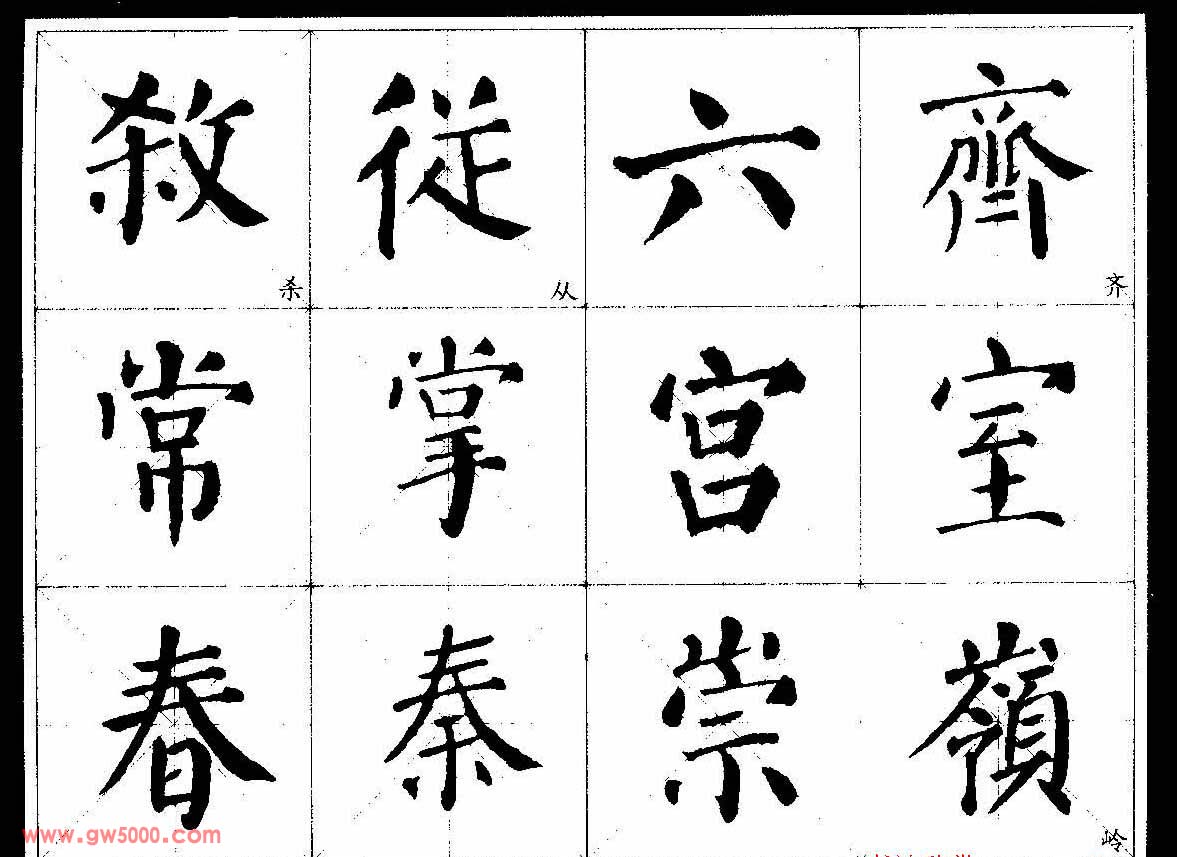 殺 從 六 齊
杀 从 齐
常 掌 宫 室
春 秦 崇 嶺
岭
www.gw5000.com